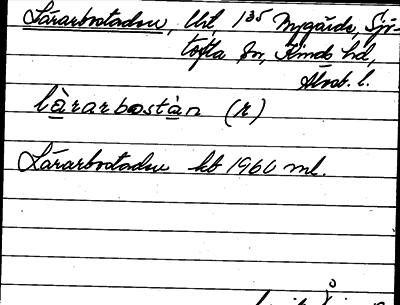 Lärarbostaden, Url, 1³⁵ Nygärde, Sjö-
tofta sn, Kinds hd,
Älvsb. l.
làrarbostàn (r)
Lärarbostaden kb 1960 ml.